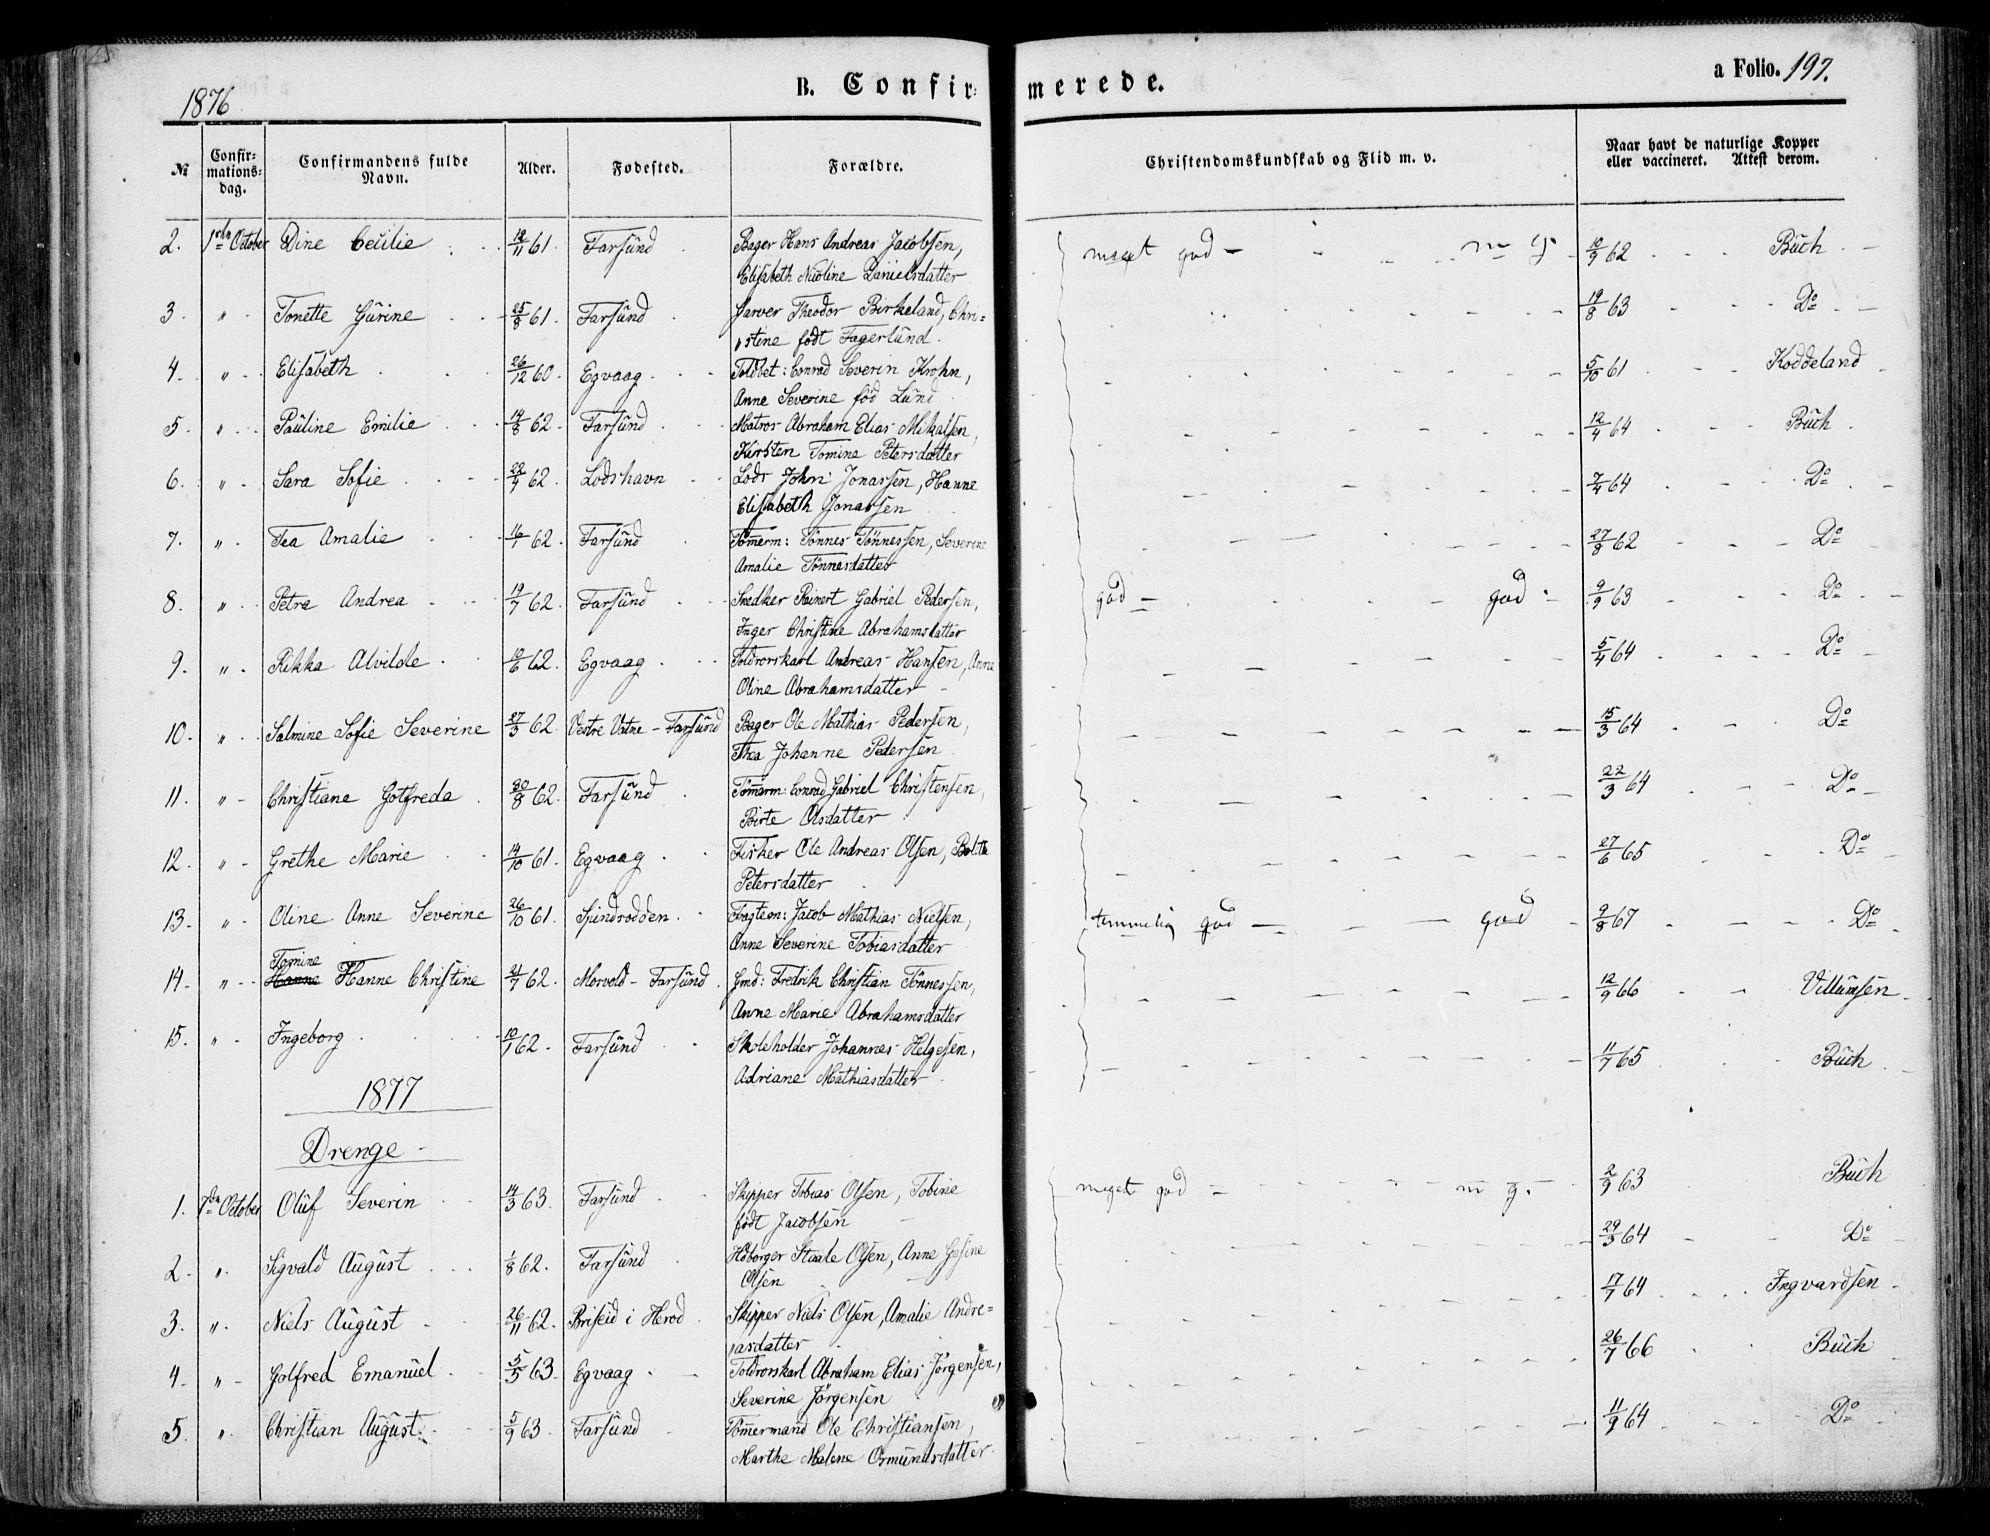 1876
B. Confirmerede.
a Folio. 197.
№
Confirmationsdag.
Confirmandens fulde Navn.
Alder.
Fødested.
Forældre.
Christendomskundskab og Flid m. v.
Naar havt de naturlige Kopper eller vaccineret. Attest derom.
2. 1ste October Dine Cecilie 18/11 61. Farsund Bager Hans Andreas Jacobsen, meget god - m g. 10/9 62 Buch
Elisabeth Nicoline Danielsdatter
3. " Tonette Gurine 25/8 61. Farsund Garver Theodor Birkeland, Chri= 19/8 63 Do
stine födt Fagerlund.
4. " Elisabeth 26/12 60 Egvaag Toldbet: Conrad Severin Krohn, 5/10 61 Koddeland
Anne Severine föd Lund
5. " Pauline Emilie 14/8 62. Farsund Matros Abraham Elias Mikalsen, 12/4 64 Buch
Kirsten Tomine Petersdatter
6. " Sara Sofie 22/9 62. Lodshavn Lods John Jonassen, Hanne 7/4 64 Do
Elisabeth Jonassen
7. " Tea Amalie 16/1 62. Farsund Tömerm: Tönnes Tönnessen, Severine 27/8 62 Do
Amalie Tönnesdatter
8. " Petra Andrea 19/7 62. Farsund Snedker Reinert Gabriel Pedersen, god - god 9/9 63 Do
Inger Christine Abrahamsdatter
9. " Rikka Alvilde 10/6 62 Egvaag Toldrorskarl Andreas Hansen, Anne 5/4 64 Do
Oline Abrahamsdatter
10. " Salmine Sofie Severine 27/3 62. Vestre Vatne - Farsund Bager Ole Mathias Pedersen, 15/3 64 Do
Thea Johanne Pedersen
11. " Christiane Gotfreda 30/8 62. Farsund Tömmerm: Conrad Gabriel Christensen, 22/3 64 Do
Birte Olsdatter
12. " Grethe Marie 14/10 61. Egvaag Fisker Ole Andreas Olsen, Bolette 27/6 65 Do
Petersdatter
13. " Oline Anne Severine 26/10 61. Spindrodden Jacob Mathias Nielsen, temmelig god - god 9/8 67 Do
Anne Severine Tobiasdatter
Tomine
14. " Hanne Hanne Christine 21/7 62. Morvold - Farsund Gmd: Fredrik Christian Tönnessen, 12/9 66 Villumsen
Anne Marie Abrahamsdatter
15. " Ingeborg 10/1 62. Farsund Skoleholder Johannes Helgesen, 11/7 65 Buch
Adriane Mathiasdatter
1877
Drenge
1. 7de October Oluf Severin 14/3 63. Farsund Skipper Tobias Olsen, Tobine meget god - m g. 2/9 63 Buch
födt Jacobsen
2. " Sigvald August 1/8 62. Farsund Huborger Staale Olsen, Anne Gesine 29/3 64 Do
Olsen
3. " Niels August 26/11 62. Briseid i Herod Skipper Niels Olsen, Amalie Andre= 17/7 64 Ingvardsen
asdatter
4. " Golfred Emanuel 5/5 63. Egvaag Toldrorskarl Abraham Elias Jörgensen, 26/7 66 Buch
Severine Jörgensen
5. " Christian August 5/9 63. Farsund Tömermand Ole Christiansen, 11/9 64 Do
Marthe Malene Osmundsdatter